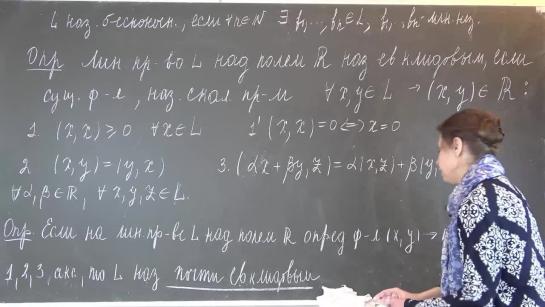 L наз. бесконечн., если ∀n∈N ∃ f₁,..., fₙ∈L, f₁, ..., fₙ - лин. нез.
Опр Лин пр-во L над полем ℝ наз евклидовым, если
сущ. ф-я, наз. скал. пр-м ∀x,y∈L → (x,y)∈ℝ:
1. (x,x)⩾0 ∀x∈L 1' (x,x)=0⇔x=0
2 (x,y)=(y,x) 3. (αx+βy,z)=α(x,z)+β(y,
∀α,β∈ℝ, ∀x,y,z∈L.
Опр. Если на лин. пр-ве L над полем ℝ опред ф-я (x,y) →
1,2,3, акс, то L наз почти евклидовым